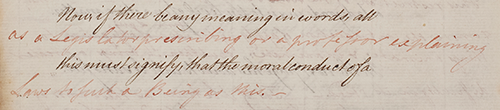 Now, if there be any meaning in words, all
as a Legislator prescribing or a professor explaining
this must signify, that the moral conduct of a
Laws to just a Being as this.